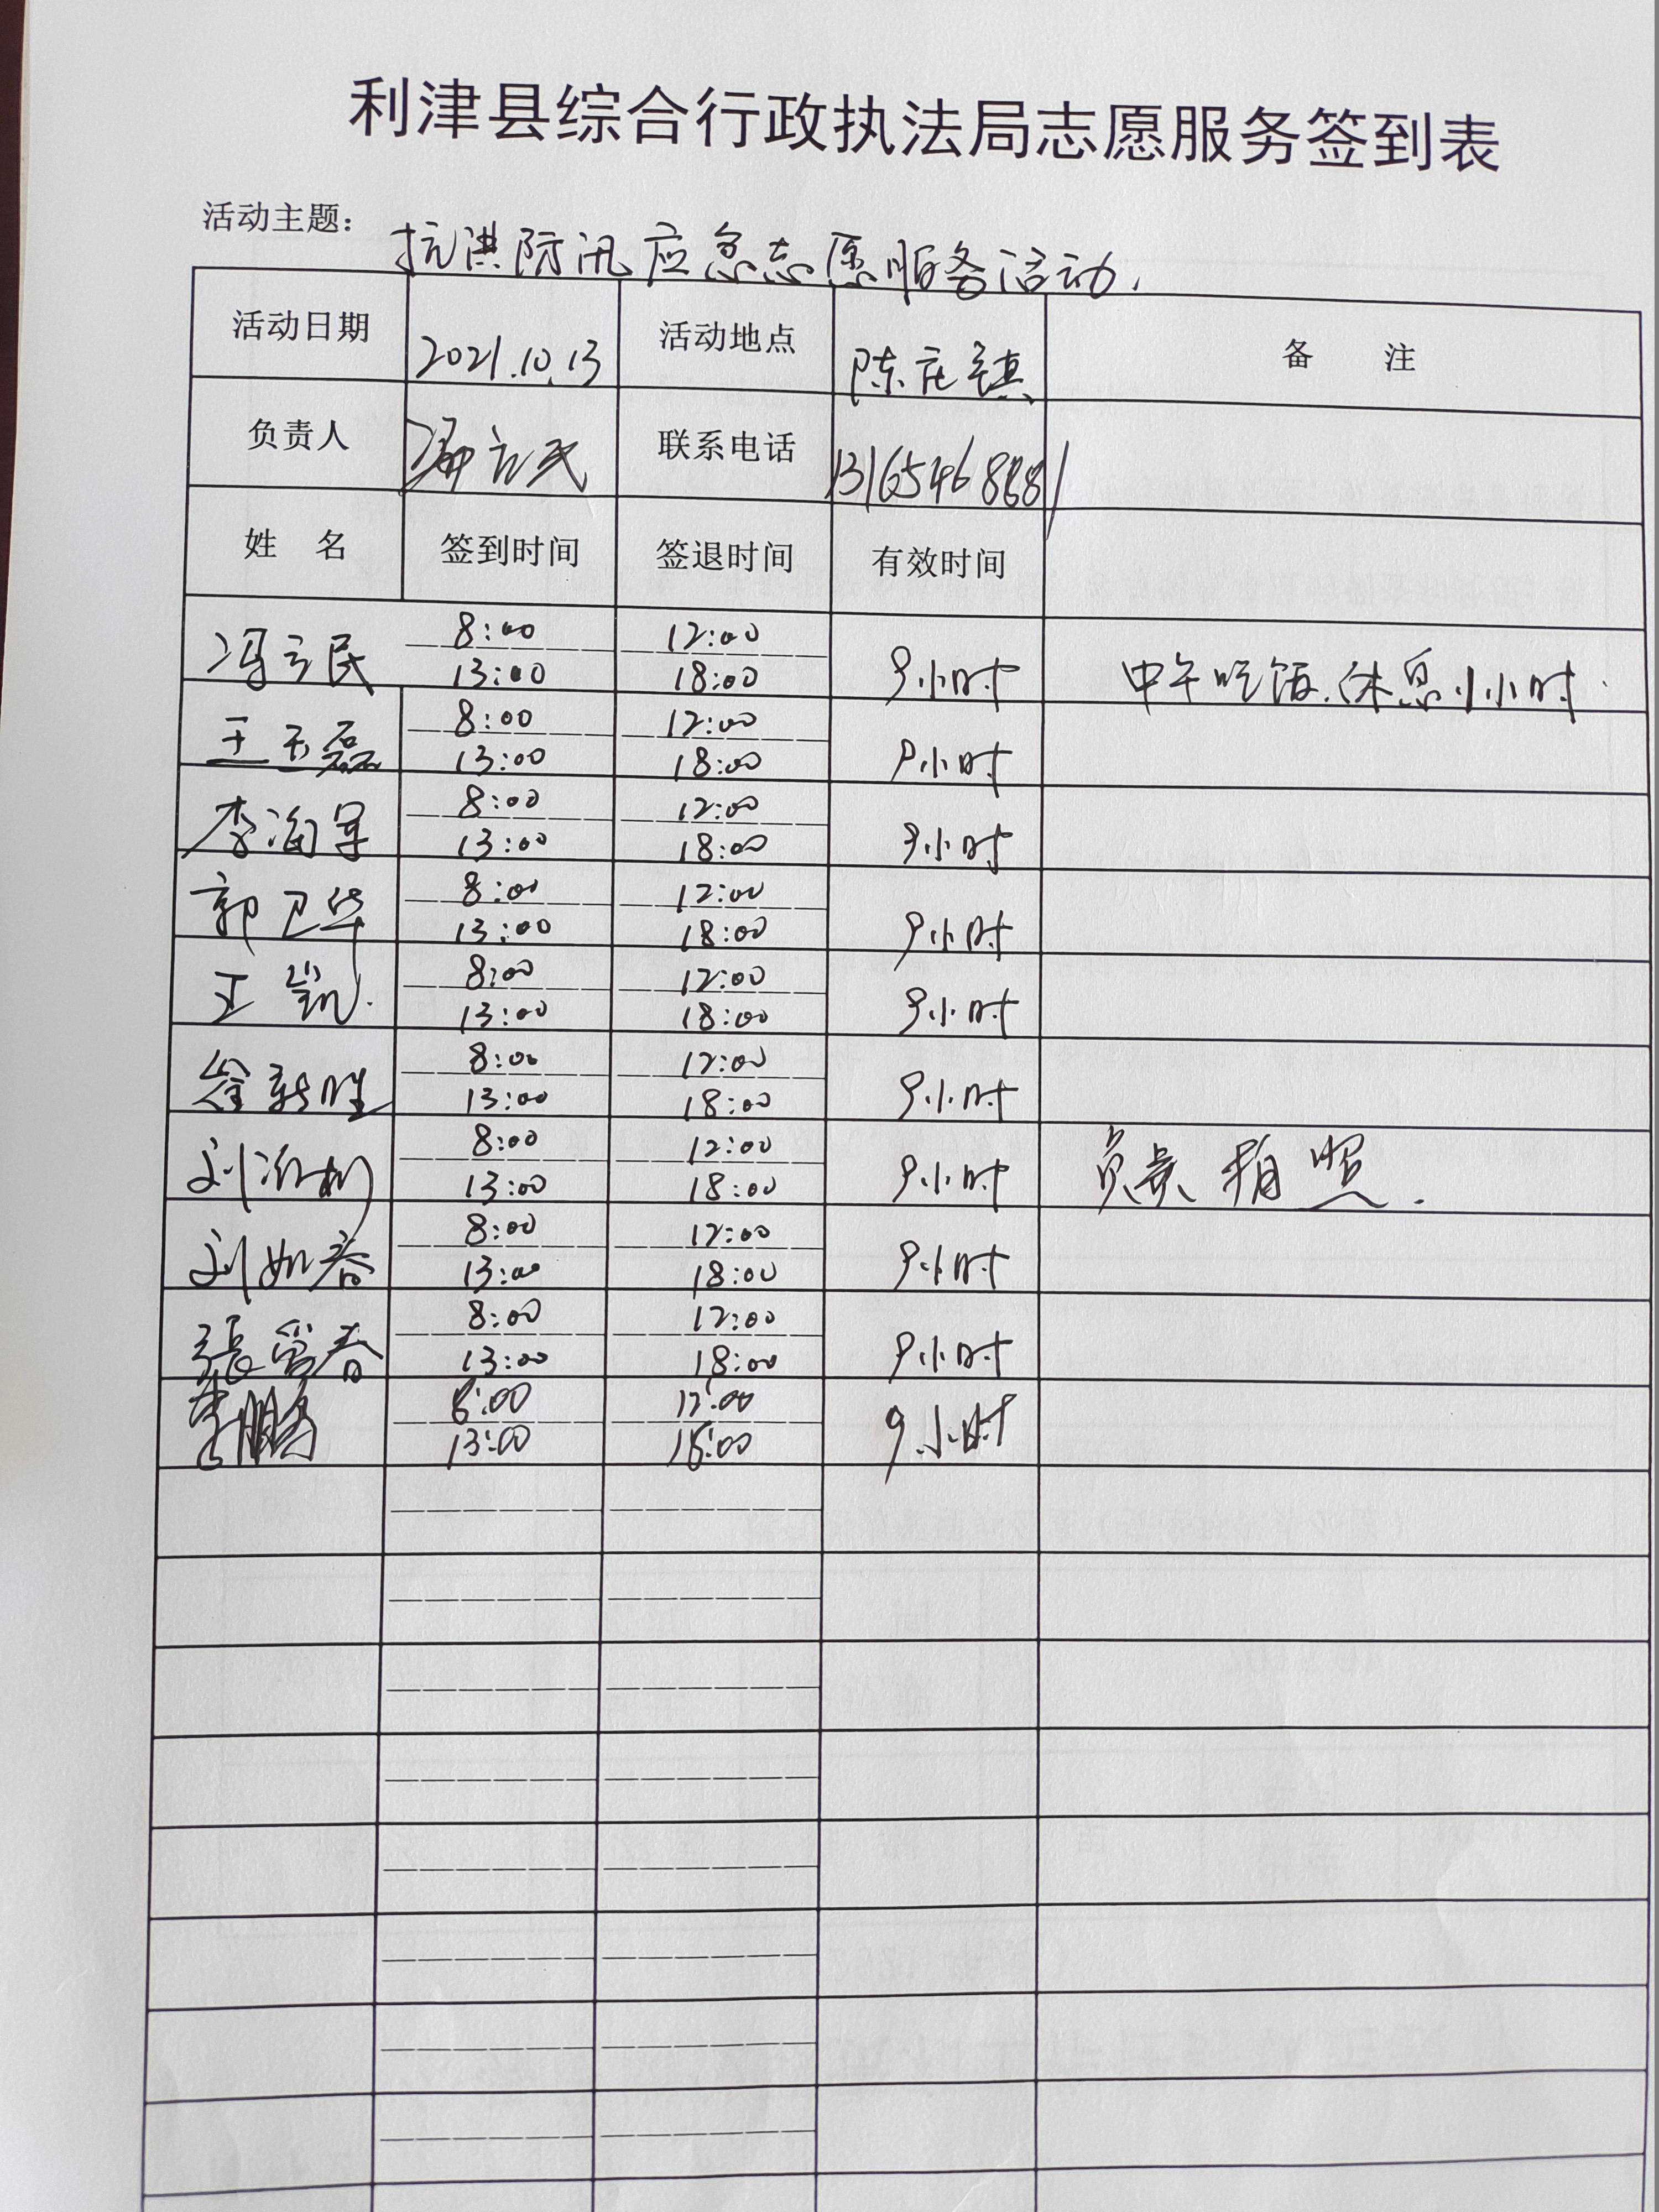 利津县综合行政执法局志愿服务签到表
活动主题： 抗洪防汛应急志愿服务活动.
活动日期 2021.10.13 活动地点 陈庄镇 备 注
负责人 冯立民 联系电话 13165468881
姓 名 签到时间 签退时间 有效时间
8:00 12:00
冯立民 13:00 18:00 9小时 中午吃饭.休息1小时.
8:00 12:00
王玉磊 13:00 18:00 9小时
8:00 12:00
李海军 13:00 18:00 9小时
8:00 12:00
郭卫华 13:00 18:00 9小时
8:00 12:00
王凯. 13:00 18:00 9小时
8:00 12:00
徐新胜 13:00 18:00 9小时
8:00 12:00
刘 13:00 18:00 9小时 负责拍照.
8:00 12:00
刘如春 13:00 18:00 9小时
8:00 12:00
張富春 13:00 18:00 9小时
8:00 12:00
李鹏 13:00 18:00 9小时